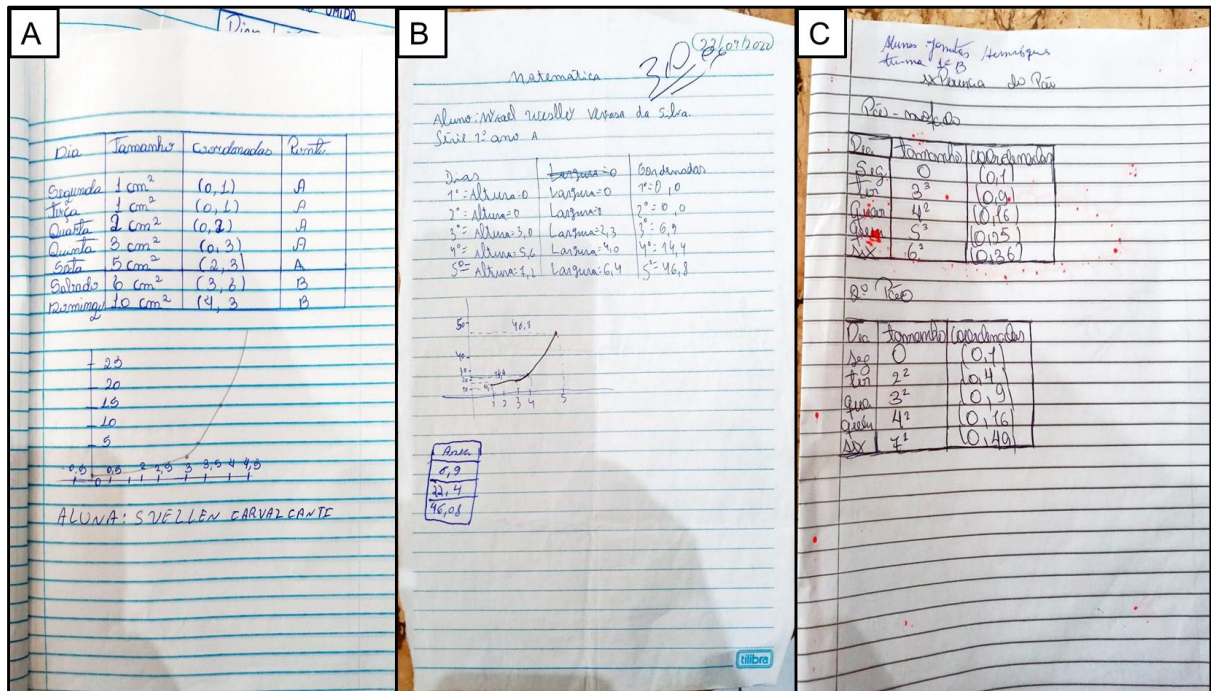 A
Dia Tamanho Coordenadas Ponto
Segunda 1 cm² (0,1) A
Terça 1 cm² (0,1) A
Quarta 2 cm² (0,2) A
Quinta 3 cm² (0,3) A
Sexta 5 cm² (2,3) A
Sabrado 6 cm² (3,6) B
Domingu 10 cm² (4,3 B
25
20
15
10
5
0,5 0 0,5 1 2 2,5 3 3,5 4 4,5
ALUNA: SUELLEN CARVALCANTE
B
22/09/2022
Matemática
3,0
Aluno: Weslley da Silva.
Série 1º ano A
Dias Largura=0 Cordenadas
1º= Altura=0 Largura=0 1º=0,0
2º= Altura=0 Largura=0 2º=0,0
3º= Altura=3,0 Largura=2,3 3º= 6,9
4º= Altura=5,6 Largura=4,0 4º=
5º= Altura=7,2 Largura=6,4 5º= 46,8
50
40
1 2 3 4 5
Area
6,9
22,4
46,08
tilibra
C
Aluno Henrique
turma 1º B
do Pão
Pão-mofado
Dia tamanho coordenadas
Seg 0 (0,1)
ter 3³ (0,9)
quar 4² (0,16)
Quin 5³ (0,25
six 6² (0,36)
2º Pão
Dia tamanho coordenadas
seg 0 (0,1
ter 2² (0,4)
qua 3² (0,9
quin 4² (0,16
six 7² (0,49)